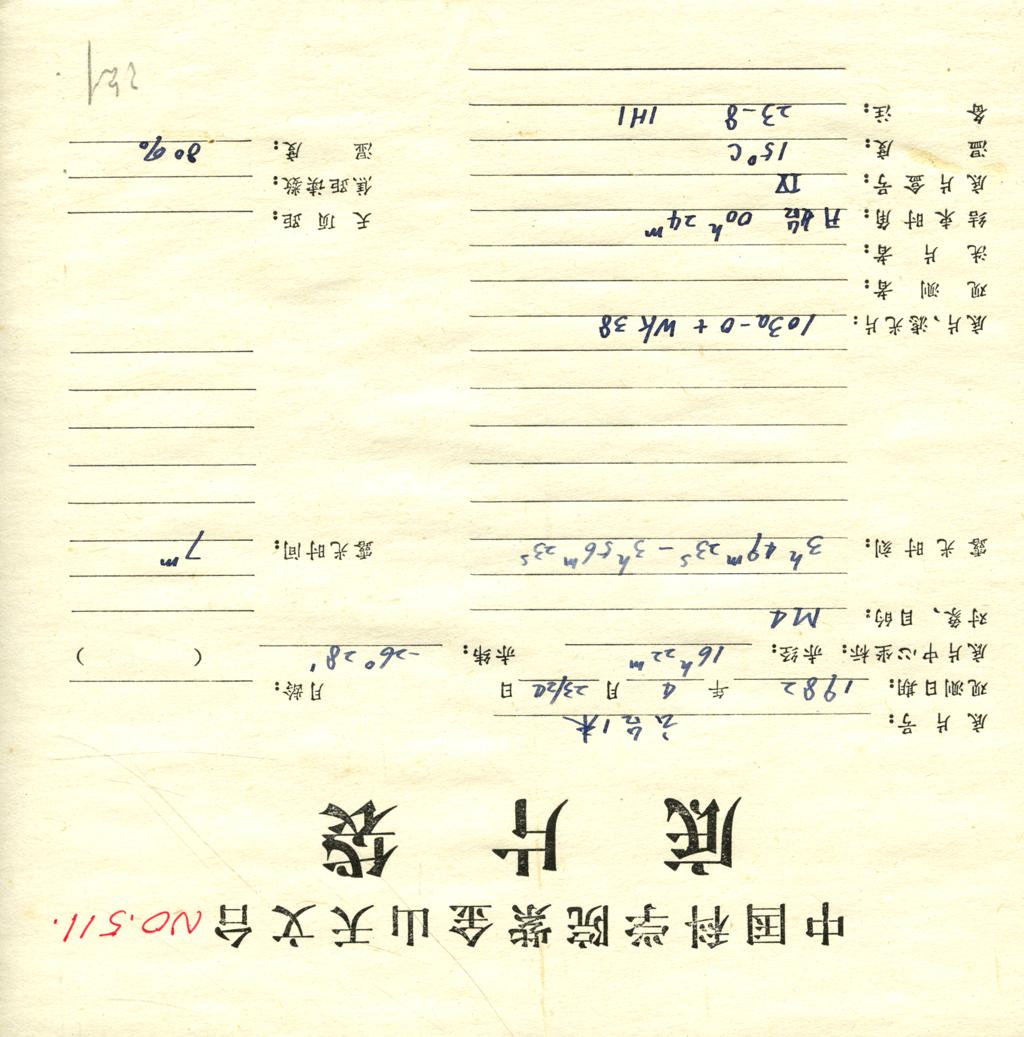 中国科学院紫金山天文台 NO.511.
底片袋
底片号: 云台1米
观测日期: 1982 年 4 月 23/24 日 月龄:
底片中心坐标: 赤经: 16h 22m 赤纬: -26° 28' ( )
对象、目的: M4
露光时刻: 3h 49m 23s - 3h 56m 23s 露光时间: 7m
底片、滤光片: 103a-O + WK38
观测者:
洗片者:
结束时角: 开始 00h 24m 天顶距:
底片盒号: IX 焦距读数:
温度: 15°C 湿度: 80%
备注: 23-8 1H1